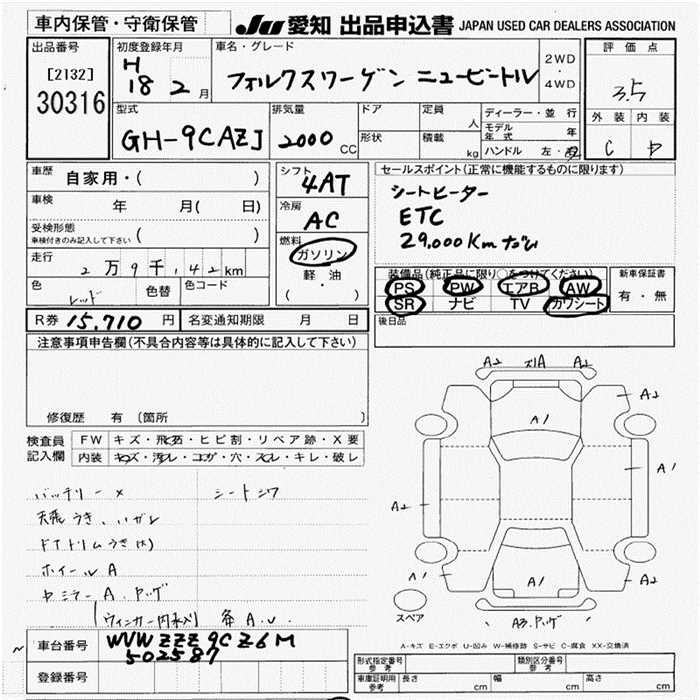 車内保管・守衛保管
JU 愛知 出品申込書 JAPAN USED CAR DEALERS ASSOCIATION
出品番号
[2132]
30316
初度登録年月
H
18 2 月
車名・グレード
フォルクスワーゲン ニュービートル
2WD
・
4WD
評価点
3.5
外装 内装
C D
型式
GH-9CAZJ
排気量
2000 CC
ドア
形状
定員
人
積載
kg
ディーラー・並 行
モデル年式 年
ハンドル 左・右
車歴
自家用・( )
車検 年 月( 日)
受検形態
車検付きのみ記入して下さい ( )
走行
2万9千,142km
色 レッド 色替 色コード
シフト
4AT
冷房
AC
燃料
ガソリン
軽・油
( ・ )
セールスポイント(正常に機能するものに限ります)
シートヒーター
ETC
29,000Km
装備品(純正品に限り○をつけてください)
PS PW エアB AW
SR ナビ TV カワシート
新車保証書
有・無
後日品
R券 15,710 円 名変通知期限 月 日
注意事項申告欄(不具合内容等は具体的に記入して下さい)
修復歴 有 〔箇所 〕
検査員
記入欄
FW キズ・飛石・ヒビ割・リペア跡・X要
内装 キズ・汚レ・コゲ・穴・スレ・キレ・破レ
バッテリー×
シートシワ
天張うき、ハガレ
ドアトリムうき(大)
ホイールA
ミラーA.
(ウィンカー内水入)
A2 A A2
A1
A2
A1
A2
A1
A1
A2
A3
スペア
A-キズ E-エクボ U-凹み W-補修跡 S-サビ C-腐食 XX-交換済
車台番号
WVWZZZ9CZ6M
502587
登録番号
形式指定番号
参考
類別区分番号
参考
車庫証明用
参考
長さ cm 幅 cm 高さ cm